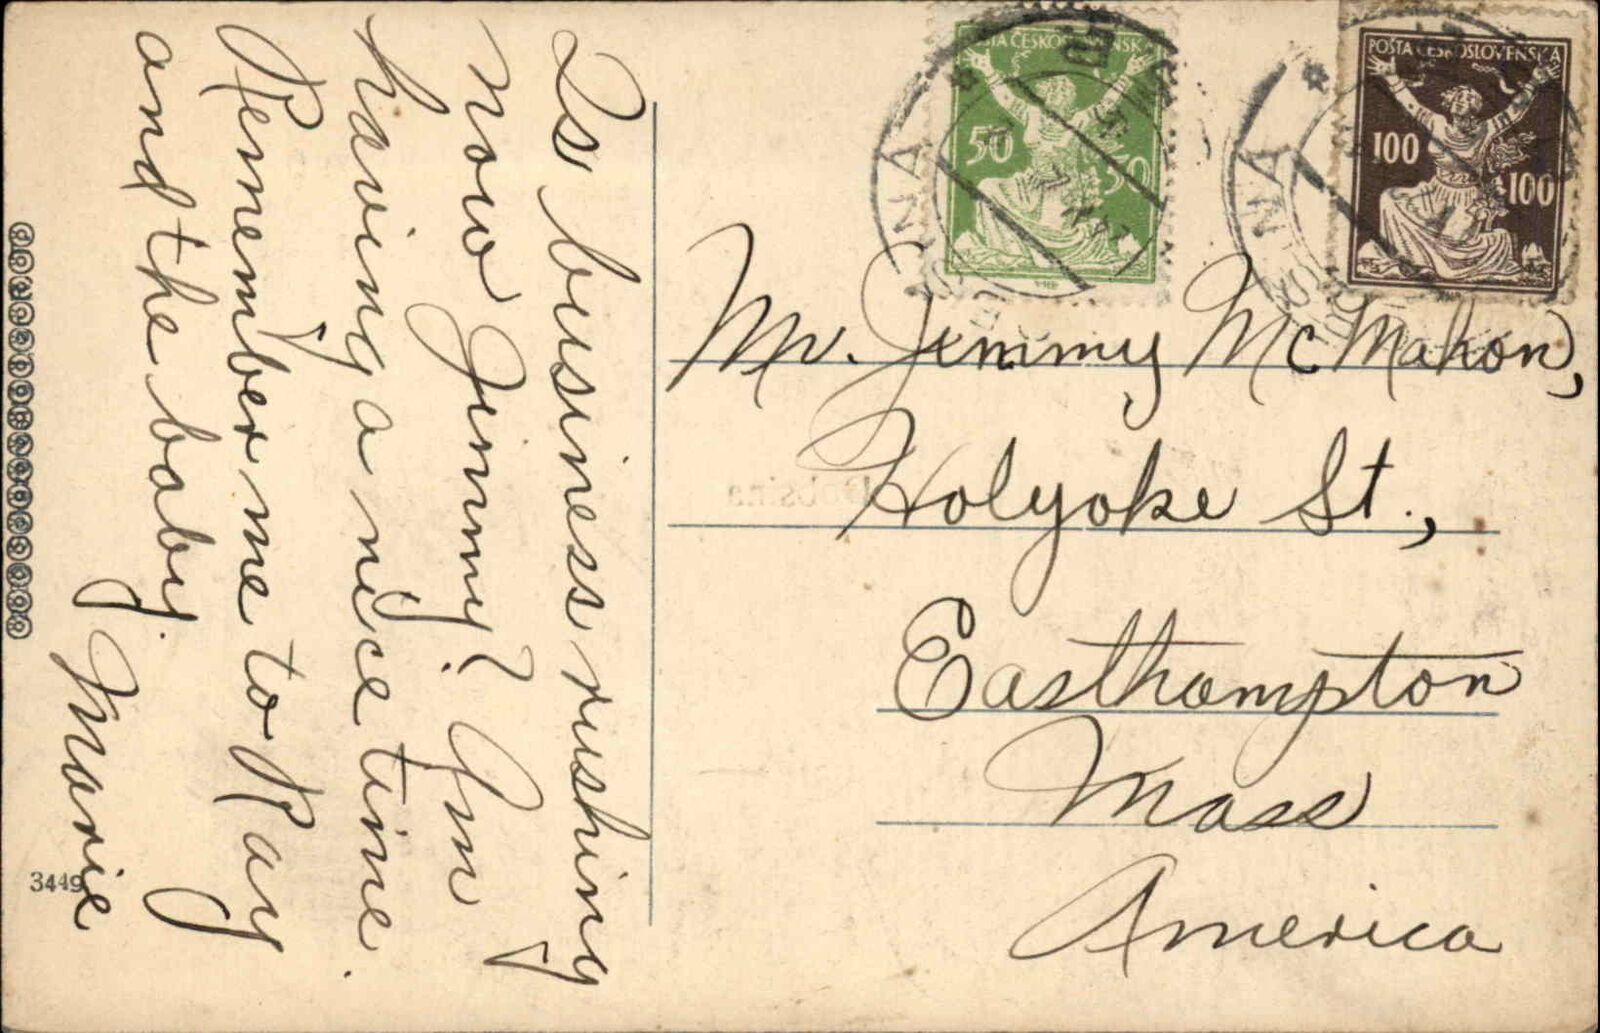 Is business rushing
now Jimmy? Am
having a nice time.
Remember me to Ray
and the baby.
Marie
3449
POŠTA ČESKOSLOVENSKÁ
50 50
POŠTA ČESKOSLOVENSKÁ
100 100
Mr. Jimmy McMahon,
Holyoke St.,
Easthampton
Mass
America